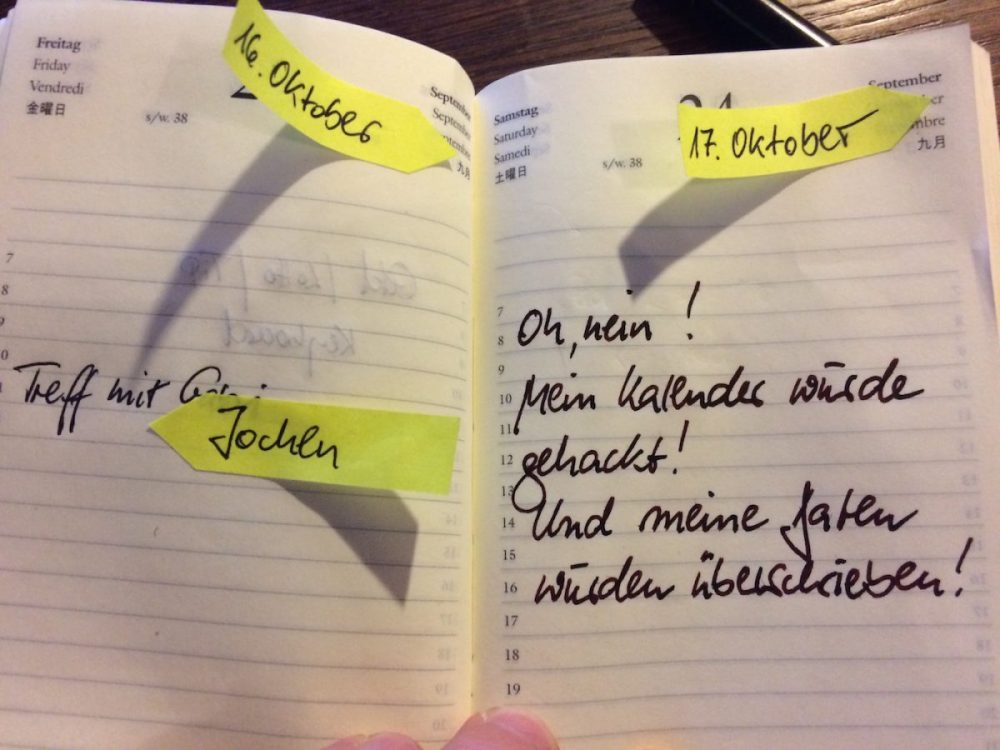 Freitag
Friday
Vendredi
金曜日
s/w. 38
16. Oktober
September
九月
7
8
9
10
Treff mit
Jochen
Samstag
Saturday
Samedi
土曜日
s/w. 38
17. Oktober
September
九月
7
8
9
10
11
12
13
14
15
16
17
18
19
Oh, nein!
Mein Kalender wurde
gehackt!
Und meine Daten
wurden überschrieben!